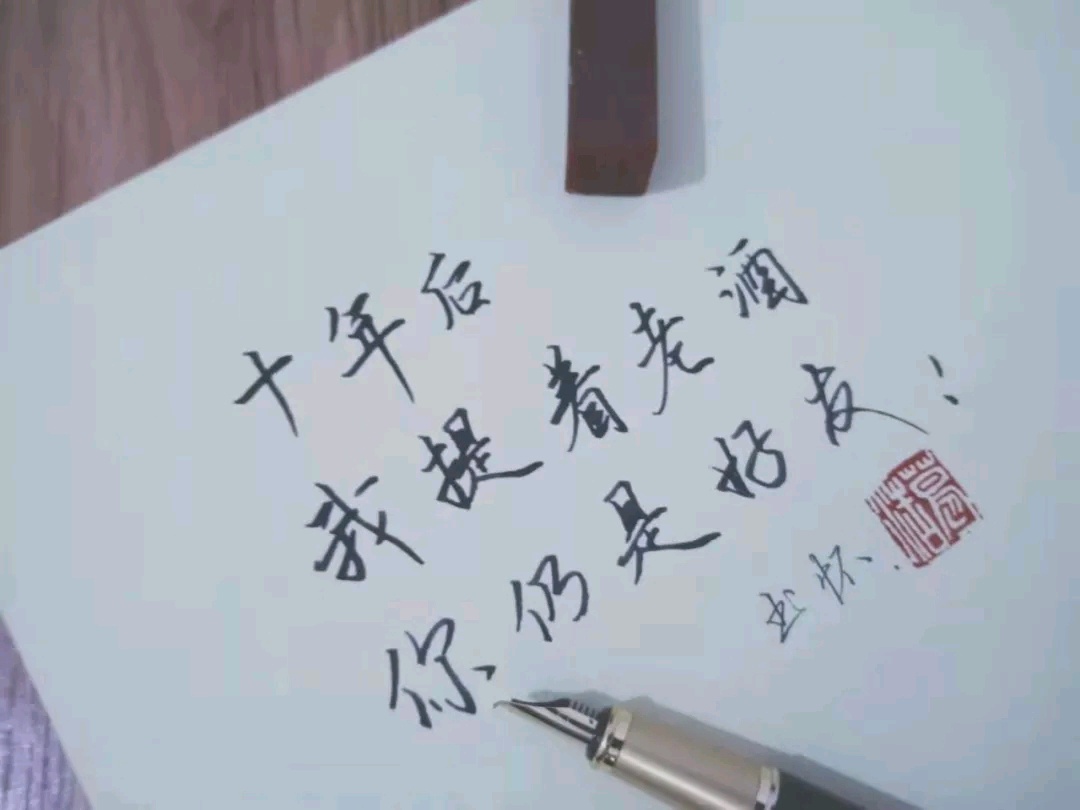 十年后
我提着老酒
你仍是好友！